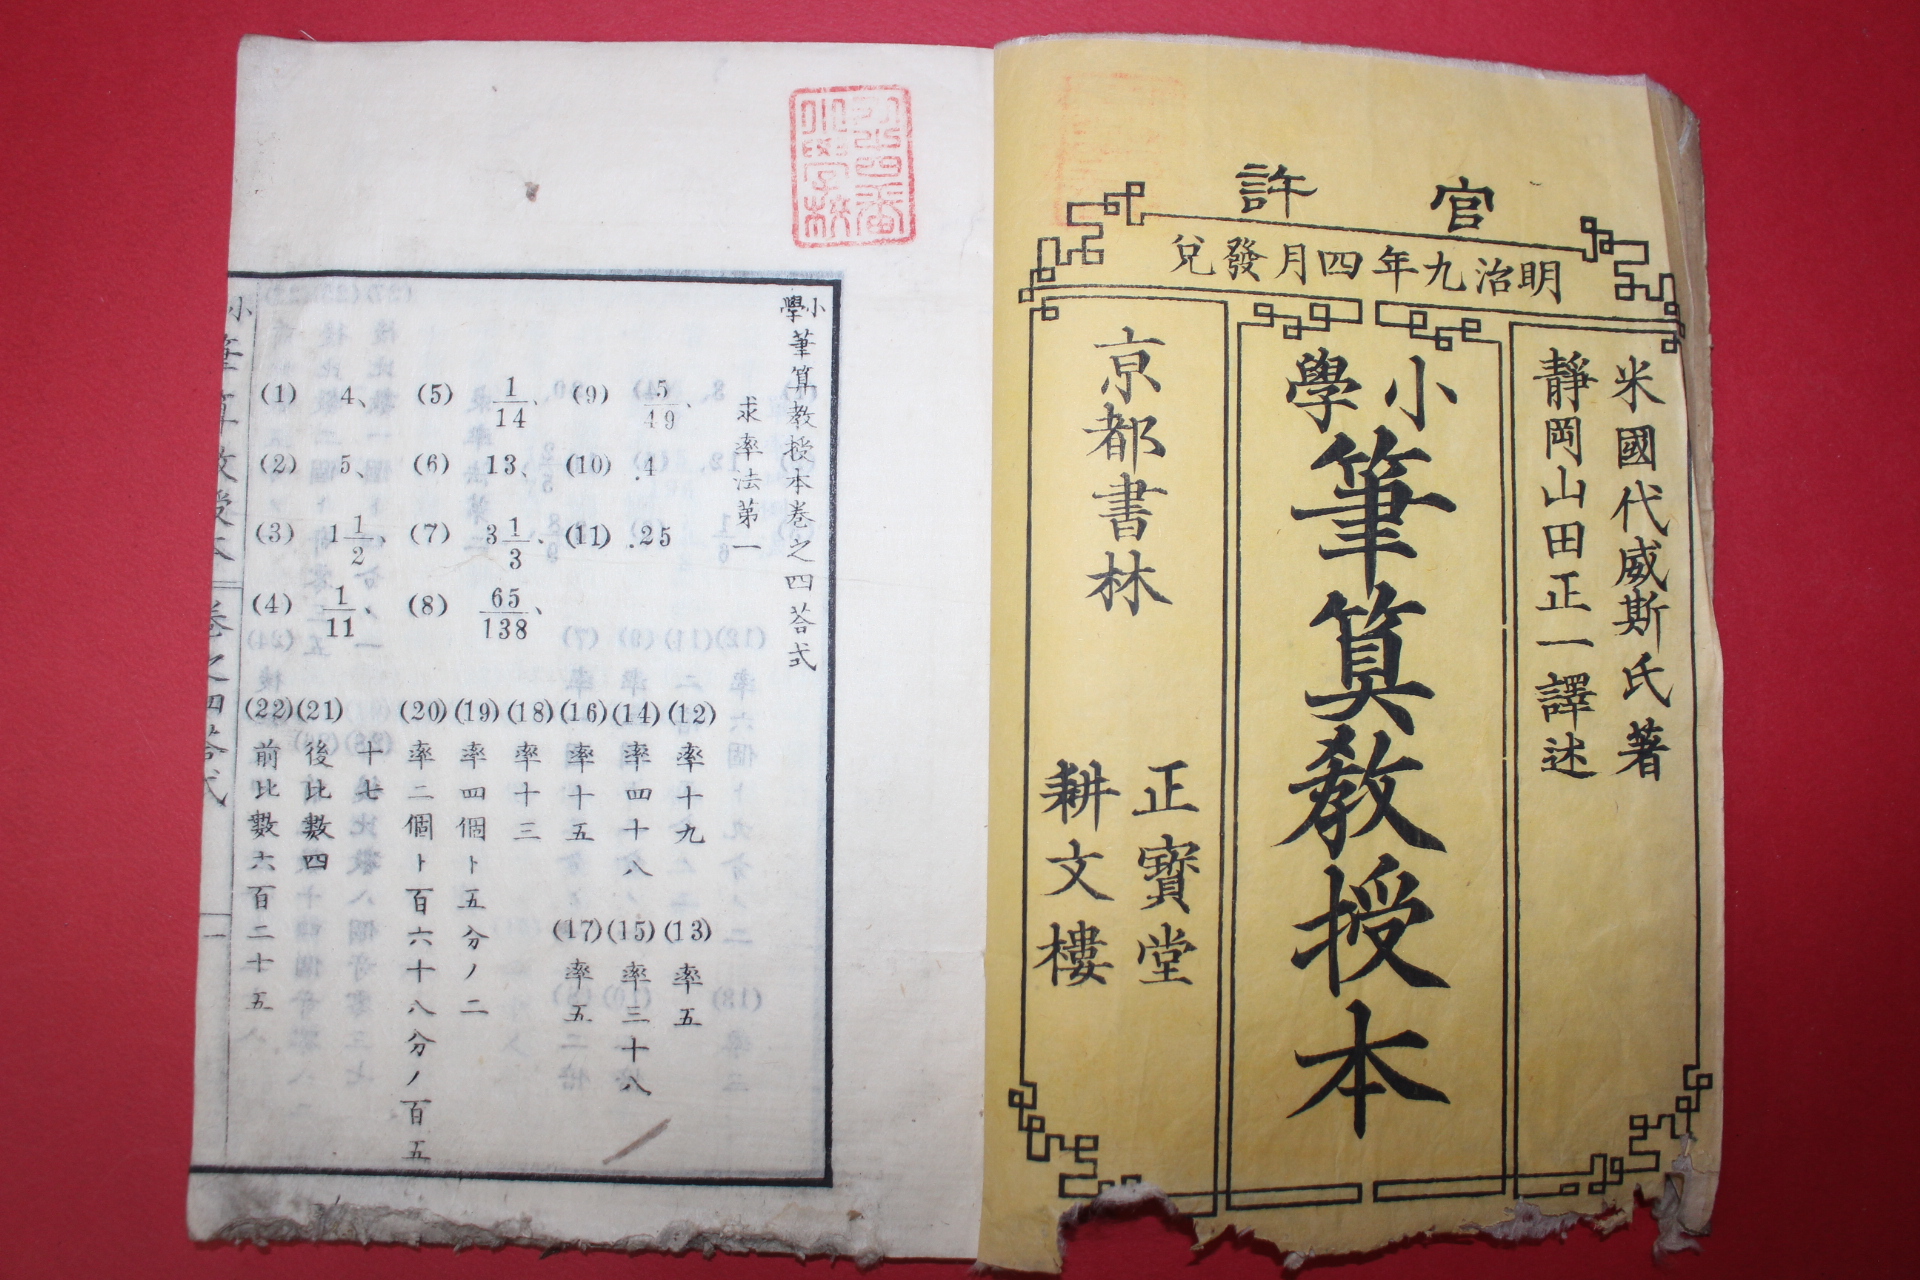 官許
明治九年四月發兌
米國代威斯氏著
靜岡山田正一譯述
小學
筆算教授本
京都書林
正寶堂
耕文樓
小學筆算教授本卷之四荅式
求率法第一
(1) 4、
(2) 5、
(3) 1 1/2、
(4) 1/11、
(5) 1/14、
(6) 13、
(7) 3 1/3、
(8) 65/138、
(9) 5/49、
(10) .4
(11) .25
(12) 率十九
(13) 率五
(14) 率四十八
(15) 率三十八
(16) 率十五
(17) 率五
(18) 率十三
(19) 率四個ト五分ノ二
(20) 率二個ト百六十八分ノ百五
十七
(21) 後比數四
(22) 前比數六百二十五
小筆算教授本 卷之四荅式 一